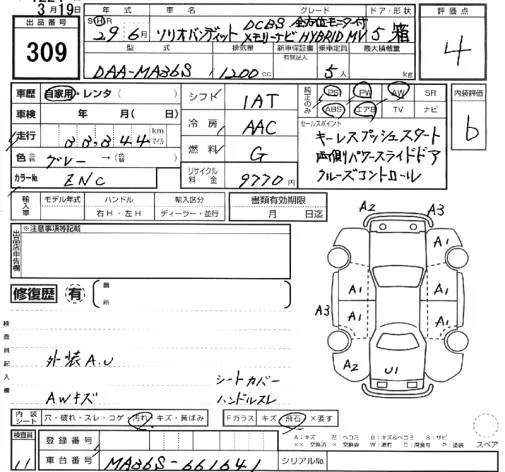 3月19日
出品番号 309
年式 車名 グレード ドア・形状
SH 29年 6月 ソリオバンディット DCBS 全方位モニター付 メモリーナビ HYBRID MV 5 箱
型式 排気量 新車保証書 有限記入 乗車定員 最大積載量
DAA-MA36S 1200cc 5人 kg
評価点
4
車歴 自家用・レンタ( )
車検 年 月( 日)
走行 km マイル
色 グレー → (色替)
カラーNo ZNC
シフト 1AT
冷房 AAC
燃料 G
リサイクル料金 9770円
純正のみ PS PW AW SR
ABS エアB TV ナビ
セールスポイント
キーレスプッシュスタート
両側パワースライドドア
クルーズコントロール
内装評価
b
輸入車 モデル年式 ハンドル 輸入区分
右H・左H ディーラー・並行
書類有効期限
月 日迄
出品店申告欄 ※注意事項等記載
修復歴 有 箇所
検査員記入欄
外装A.U
AWキズ
シートカバー
ハンドルスレ
A2 A3
A1 A1
A3 A1 A1
A1 A1
U1
内装シート 穴・破れ・スレ・コゲ・汚れ・キズ・黄ばみ
Fガラス キズ・飛石・×要す
スペア
検査員 11
登録番号
車台番号 MA36S-661641
シリアルNo.